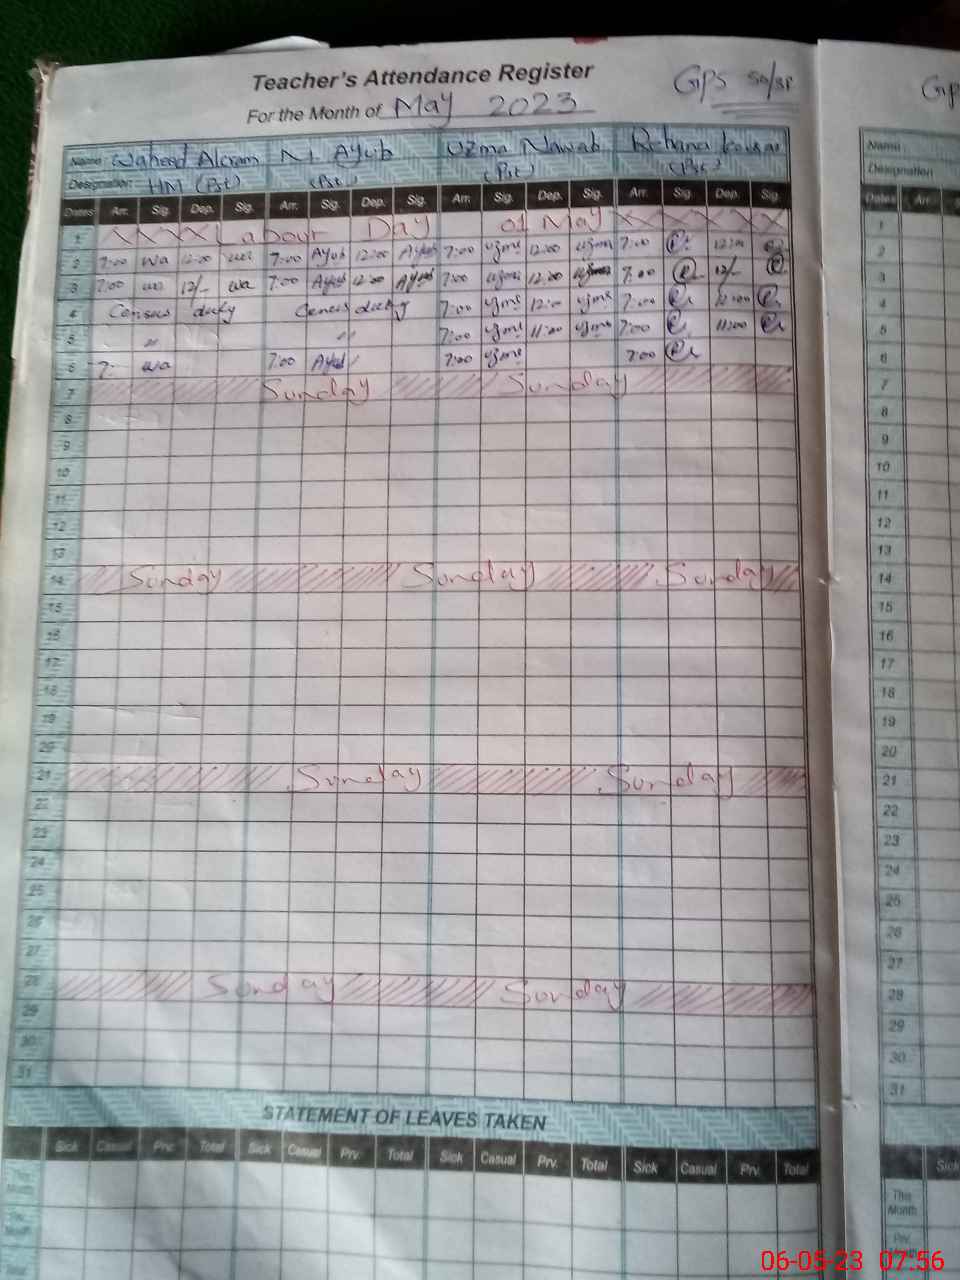 Teacher's Attendance Register
For the Month of May 2023
GPS
Name: Waheed Akram M. Ayub Uzma Nawab Rehana Kousar
Designation: HM (Pst) (Pst) (Pst) (Pst)
Dates Arr. Sig. Dep. Sig. Arr. Sig. Dep. Sig. Arr. Sig. Dep. Sig. Arr. Sig. Dep. Sig.
1 X X X X Labour Day 01 May X X X X X
2 7:00 wa 12:00 wa 7:00 Ayub 12:00 Ayub 7:00 uzma 12:00 uzma 7:00 12:00
3 7:00 wa 12/- wa 7:00 Ayub 12:00 Ayub 7:00 uzma 12:00 uzma 7:00 12/-
4 Census duty Census duty 7:00 uzma 12:00 uzma 7:00 12:00
5 〃 〃 7:00 uzma 11:00 uzma 7:00 11:00
6 7- wa 7:00 Ayub 7:00 uzma 7:00
7 Sunday Sunday
8
9
10
11
12
13
14 Sunday Sunday Sunday
15
16
17
18
19
20
21 Sunday Sunday
22
23
24
25
26
27
28 Sunday Sunday
29
30
31
STATEMENT OF LEAVES TAKEN
Sick Casual Prv. Total Sick Casual Prv. Total Sick Casual Prv. Total Sick Casual Prv. Total
This Month
Prv. Month
Total
Name:
Designation
Dates Arr.
1
2
3
4
5
6
7
8
9
10
11
12
13
14
15
16
17
18
19
20
21
22
23
24
25
26
27
28
29
30
31
Sick
This Month
06-05-23 07:56